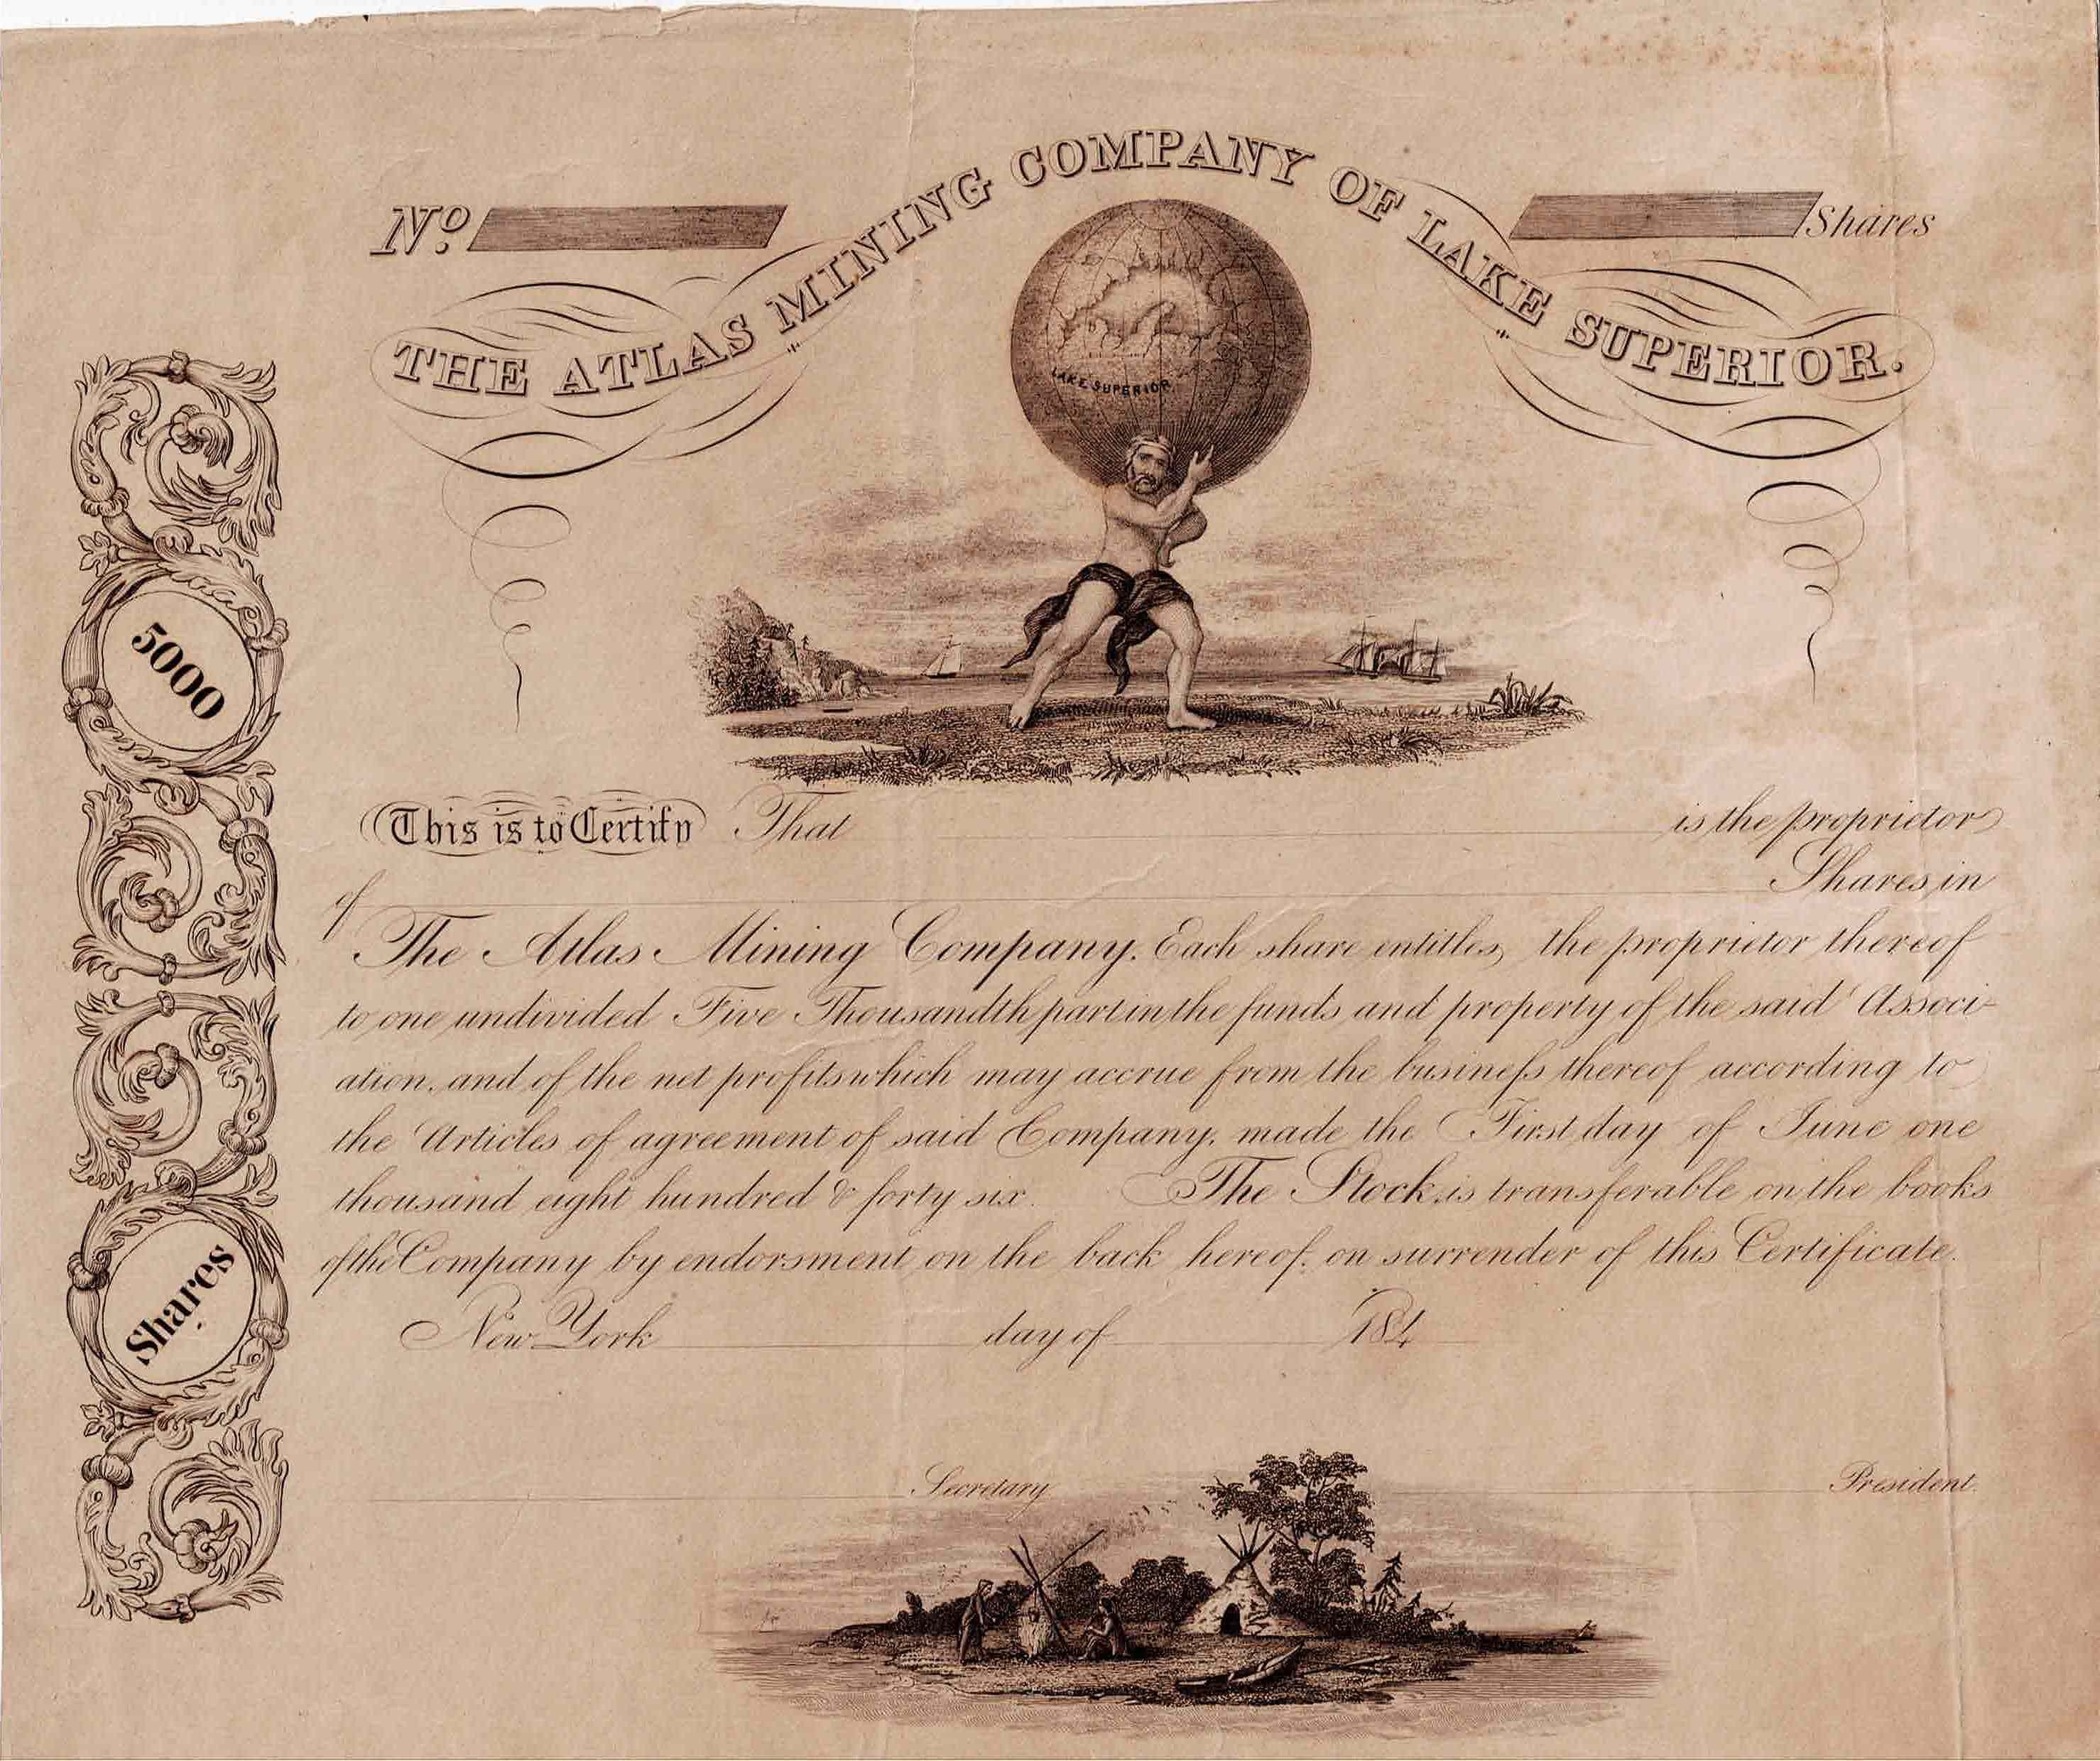 THE ATLAS MINING COMPANY OF LAKE SUPERIOR.
No.
Shares
LAKE SUPERIOR.
5000
Shares
This is to Certify That is the proprietor
of Shares in
The Atlas Mining Company. Each share entitles the proprietor thereof
to one undivided Five Thousandth part in the funds and property of the said Associ-
ation, and of the net profits which may accrue from the business thereof according to
the Articles of agreement of said Company, made the First day of June one
thousand eight hundred & forty six. The Stock is transferable on the books
of the Company by endorsment on the back hereof, on surrender of this Certificate.
New York day of 184
Secretary President.